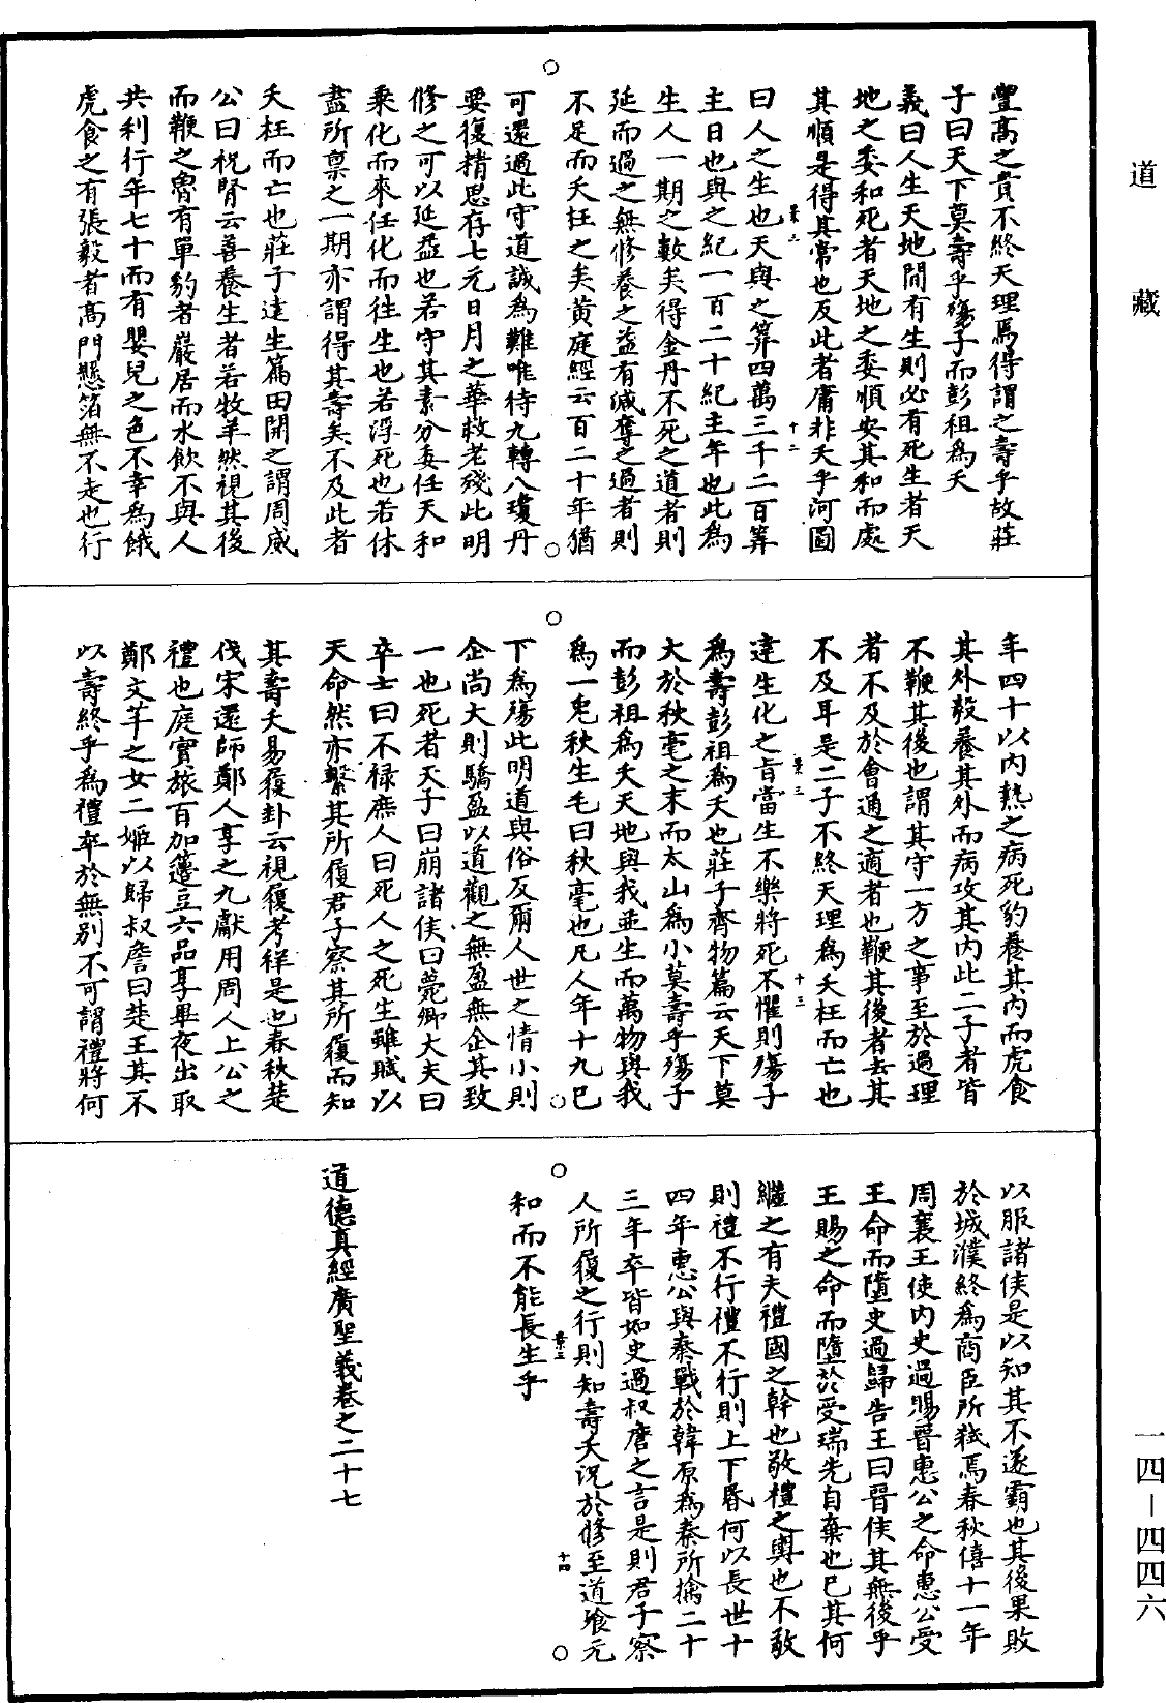 道藏
豐高之貴不終天理焉得謂之壽乎故莊
子曰天下莫壽乎殤子而彭祖為夭
義曰人生天地間有生則必有死生者天
地之委和死者天地之委順安其和而處
其順是得其常也反此者庸非夭乎河圖
曰人之生也天與之筭四萬三千二百筭
主日也與之紀一百二十紀主年也此為
生人一期之數矣得金丹不死之道者則
延而過之無修養之益有減奪之過者則
不足而夭枉之矣黃庭經云百二十年猶
可還過此守道誠為難唯待九轉八瓊丹
要復精思存七元日月之華救老殘此明
修之可以延益也若守其素分委任天和
乘化而來任化而往生也若浮死也若休
盡所稟之一期亦謂得其壽矣不及此者
夭枉而亡也莊子達生篇田開之謂周威
公曰祝腎云善養生者若牧羊然視其後
而鞭之魯有單豹者巖居而水飲不與人
共利行年七十而有嬰兒之色不幸為餓
虎食之有張毅者高門懸箔無不走也行
年四十以內熱之病死豹養其內而虎食
其外毅養其外而病攻其內此二子者皆
不鞭其後也謂其守一方之事至於過理
者不及於會通之適者也鞭其後者去其
不及耳是二子不終天理為夭枉而亡也
達生化之旨當生不樂將死不懼則殤子
為壽彭祖為夭也莊子齊物篇云天下莫
大於秋毫之末而太山為小莫壽乎殤子
而彭祖為夭天地與我並生而萬物與我
為一兎秋生毛曰秋毫也凡人年十九已
下為殤此明道與俗反爾人世之情小則
企尚大則驕盈以道觀之無盈無企其致
一也死者天子曰崩諸侯曰薨卿大夫曰
卒士曰不祿庶人曰死人之死生雖賦以
天命然亦繫其所履君子察其所履而知
其壽夭易履卦云視履考祥是也春秋楚
伐宋還師鄭人享之九獻用周人上公之
禮也庭實旅百加籩豆六品享畢夜出取
鄭文芊之女二姬以歸叔詹曰楚王其不
以壽終乎為禮卒於無別不可謂禮將何
以服諸侯是以知其不遂霸也其後果敗
於城濮終為商臣所弒焉春秋僖十一年
周襄王使內史過賜晉惠公之命惠公受
王命而墮史過歸告王曰晉侯其無後乎
王賜之命而墮於受瑞先自棄也已其何
繼之有夫禮國之幹也敬禮之輿也不敬
則禮不行禮不行則上下昏何以長世十
四年惠公與秦戰於韓原為秦所擒二十
三年卒皆如史過叔詹之言是則君子察
人所履之行則知壽夭況於修至道飡元
和而不能長生乎
道德真經廣聖義卷之二十七
一四—四四六